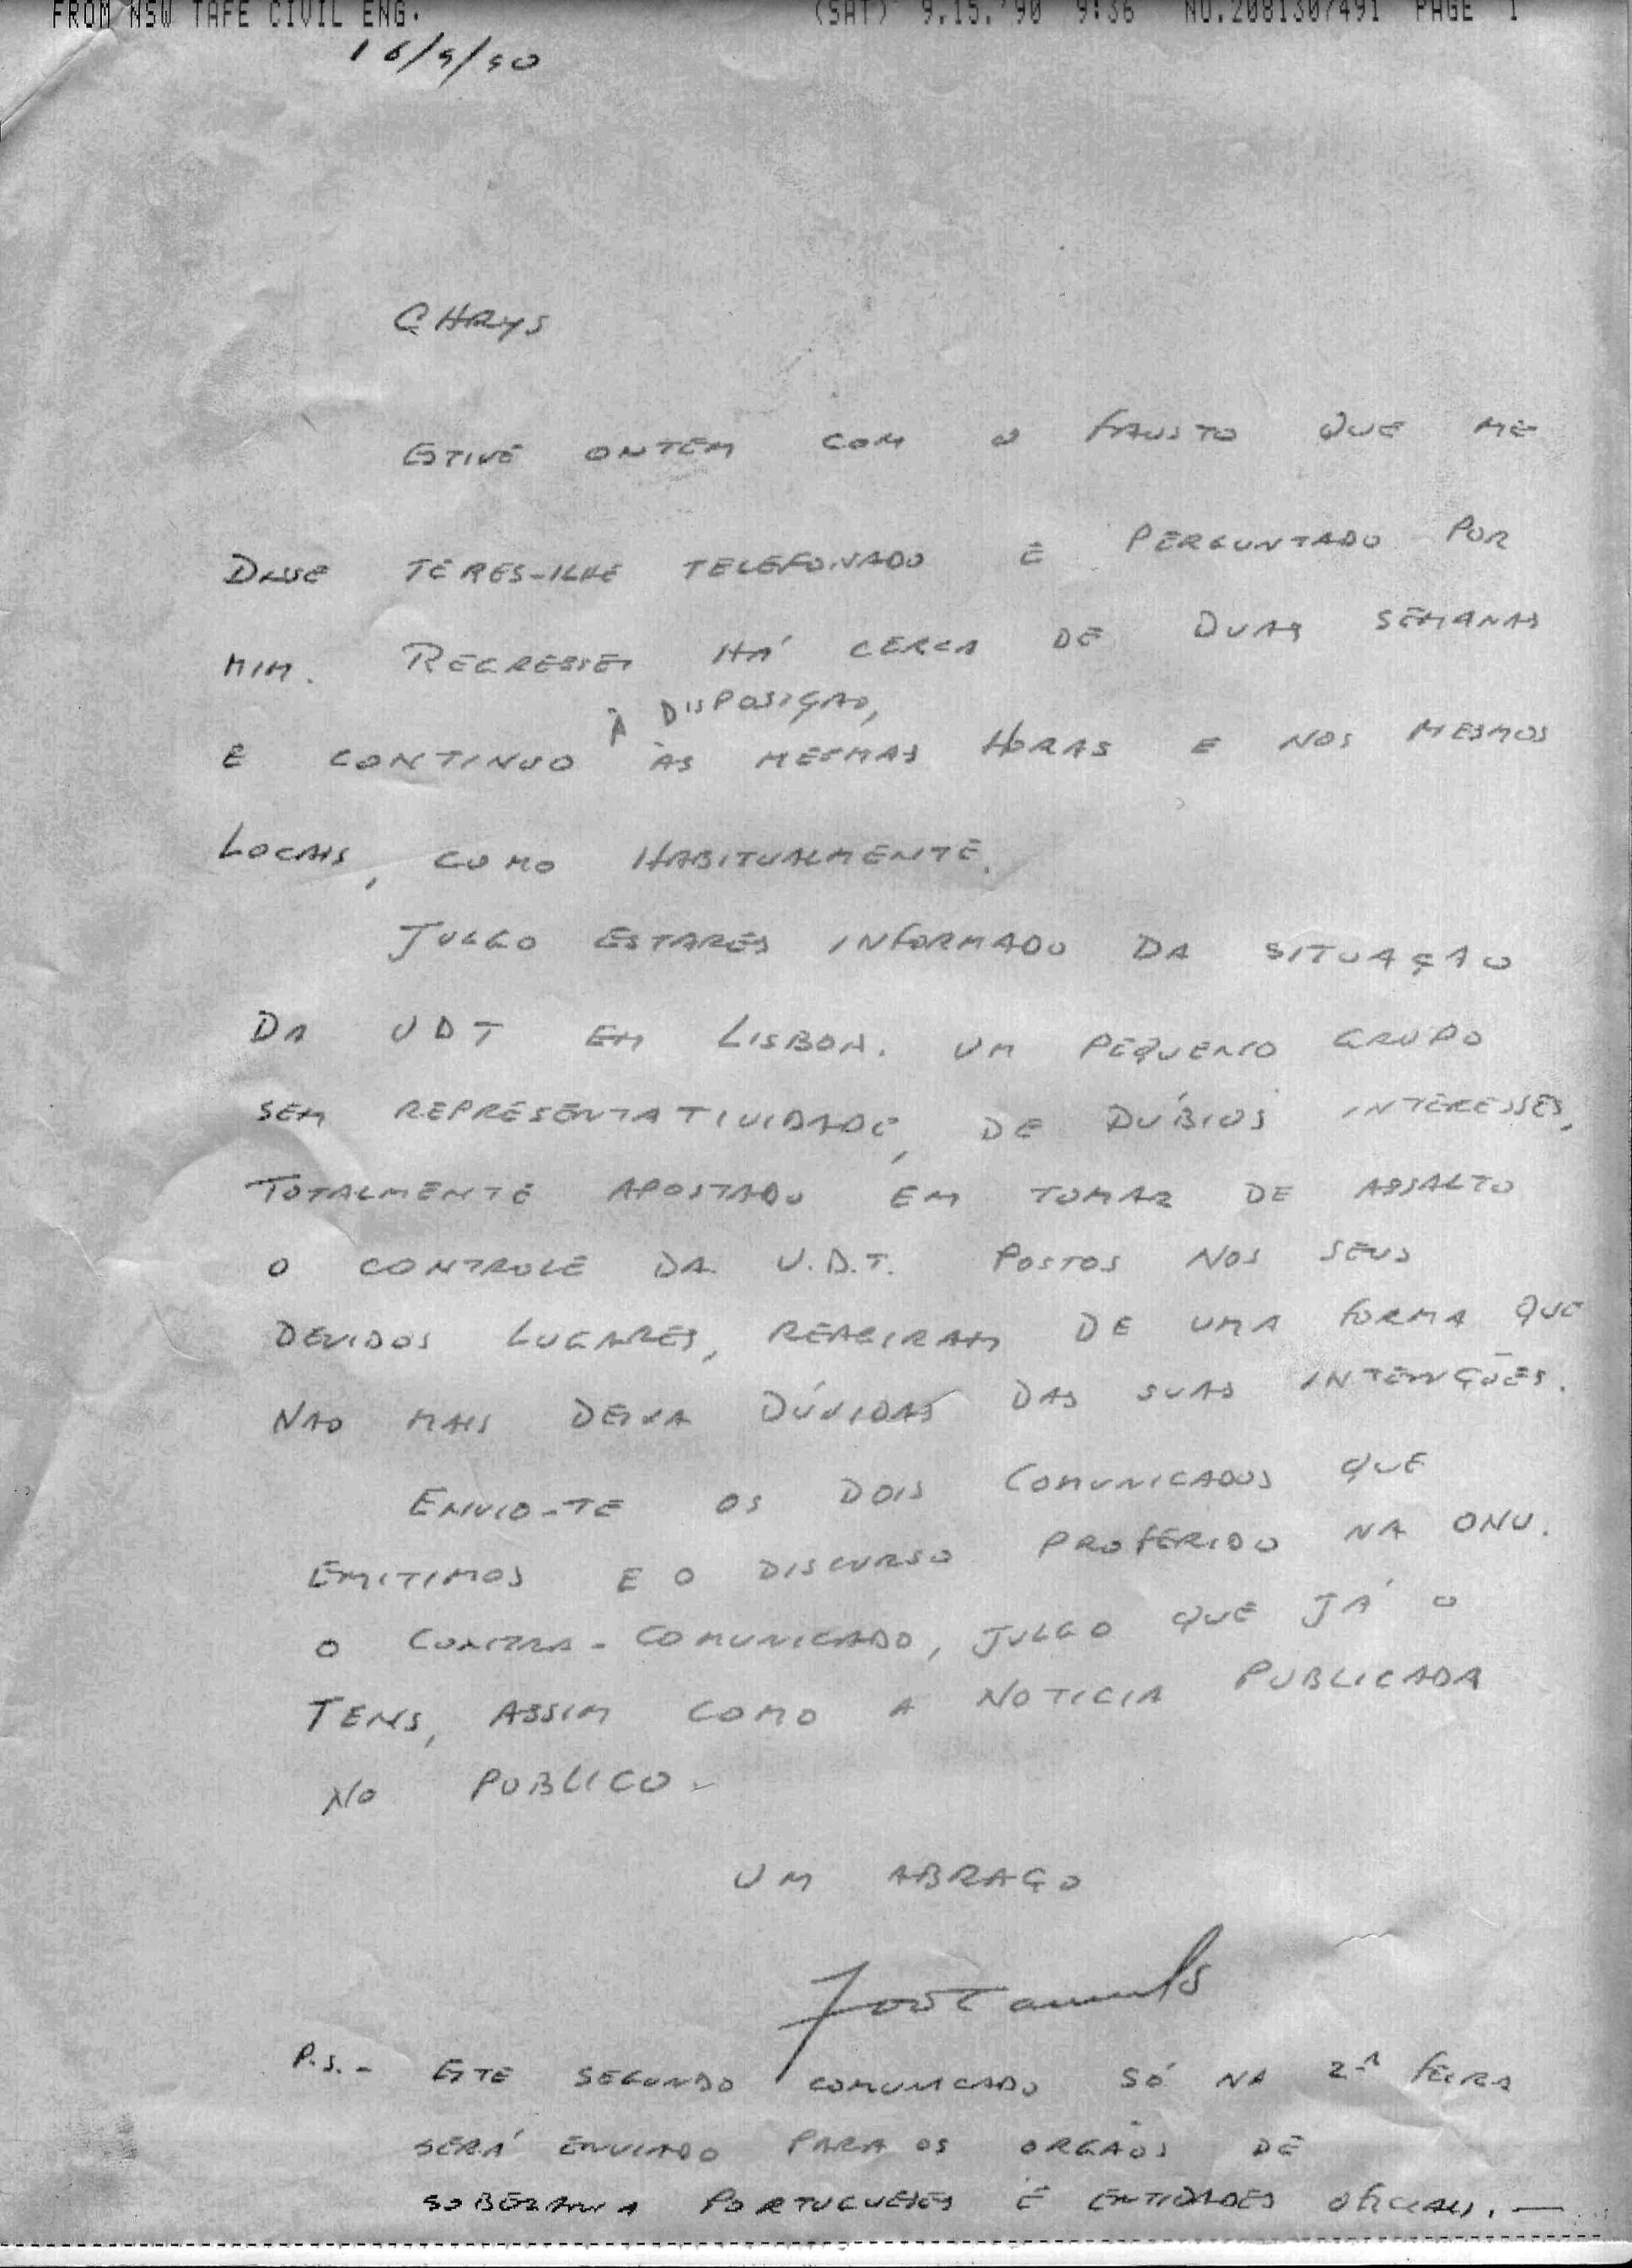 FROM NSW TAFE CIVIL ENG. (SAT) 9.15.'90 9:36 NO.2081307491 PAGE 1
16/9/90
CHRYS
ESTIVE ONTEM COM O FAUSTO QUE ME
DISSE TERES-LHE TELEFONADO E PERGUNTADO POR
MIM. REGRESSEI HÁ CERCA DE DUAS SEMANAS
À DISPOSIÇAO,
E CONTINUO ÀS MESMAS HORAS E NOS MESMOS
LOCAIS, COMO HABITUALMENTE.
JULGO ESTARES INFORMADO DA SITUAÇAO
DA UDT EM LISBOA. UM PEQUENO GRUPO
SEM REPRESENTATIVIDADE, DE DÚBIOS INTERESSES,
TOTALMENTE APOSTADO EM TOMAR DE ASSALTO
O CONTROLE DA U.D.T. POSTOS NOS SEUS
DEVIDOS LUGARES, REAGIRAM DE UMA FORMA QUE
NAO MAIS DEIXA DÚVIDAS DAS SUAS INTENÇÕES.
ENVIO-TE OS DOIS COMUNICADOS QUE
EMITIMOS E O DISCURSO PROFERIDO NA ONU.
O CONTRA-COMUNICADO, JULGO QUE JÁ O
TENS, ASSIM COMO A NOTICIA PUBLICADA
NO PUBLICO.
UM ABRAÇO
P.S.- ESTE SEGUNDO COMUNICADO SÓ NA 2ª FEIRA
SERÁ ENVIADO PARA OS ORGÃOS DE
SOBERANIA PORTUGUESES E ENTIDADES OFICIAIS. —